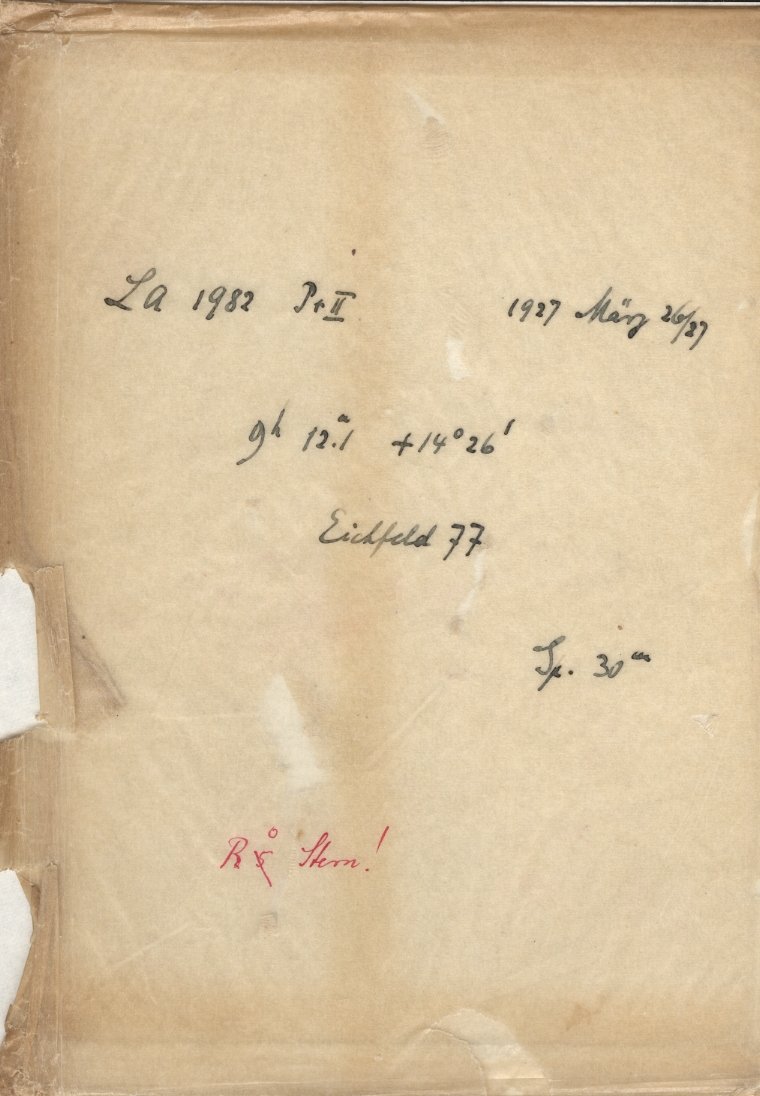 LA 1982 Pr II 1927 März 26/27
9h 12.m1 +14° 26'
Eichfeld 77
Sp. 30m
Stern!